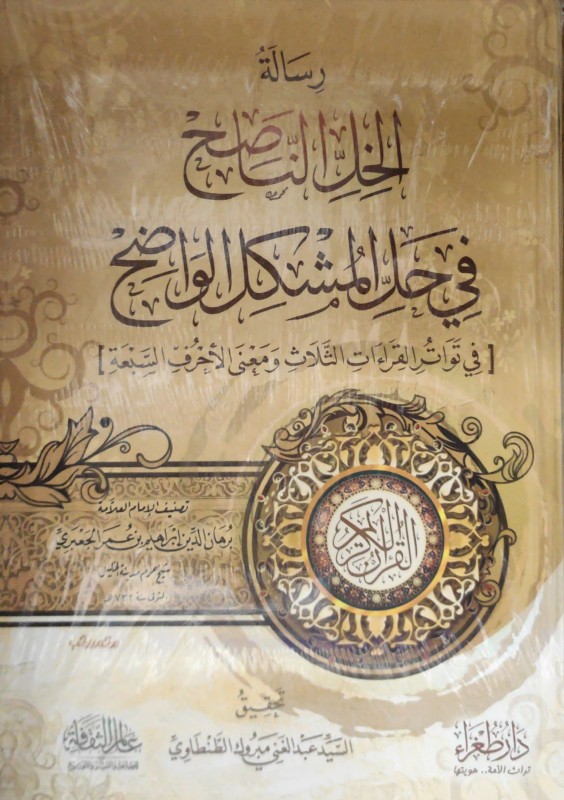 رسالة
الخل الناصح
في حل المشكل الواضح
[في تواتر القراءات الثلاث ومعنى الأحرف السبعة]
القرآن الكريم
تصنيف الإمام العلامة
برهان الدين إبراهيم بن عمر الجعبري
المتوفى سنة ٧٣٢هـ
تحقيق
السيد عبد الغني مبروك الطنطاوي
دار طغراء
تراث الأمة.. هويتها
عالم الثقافة